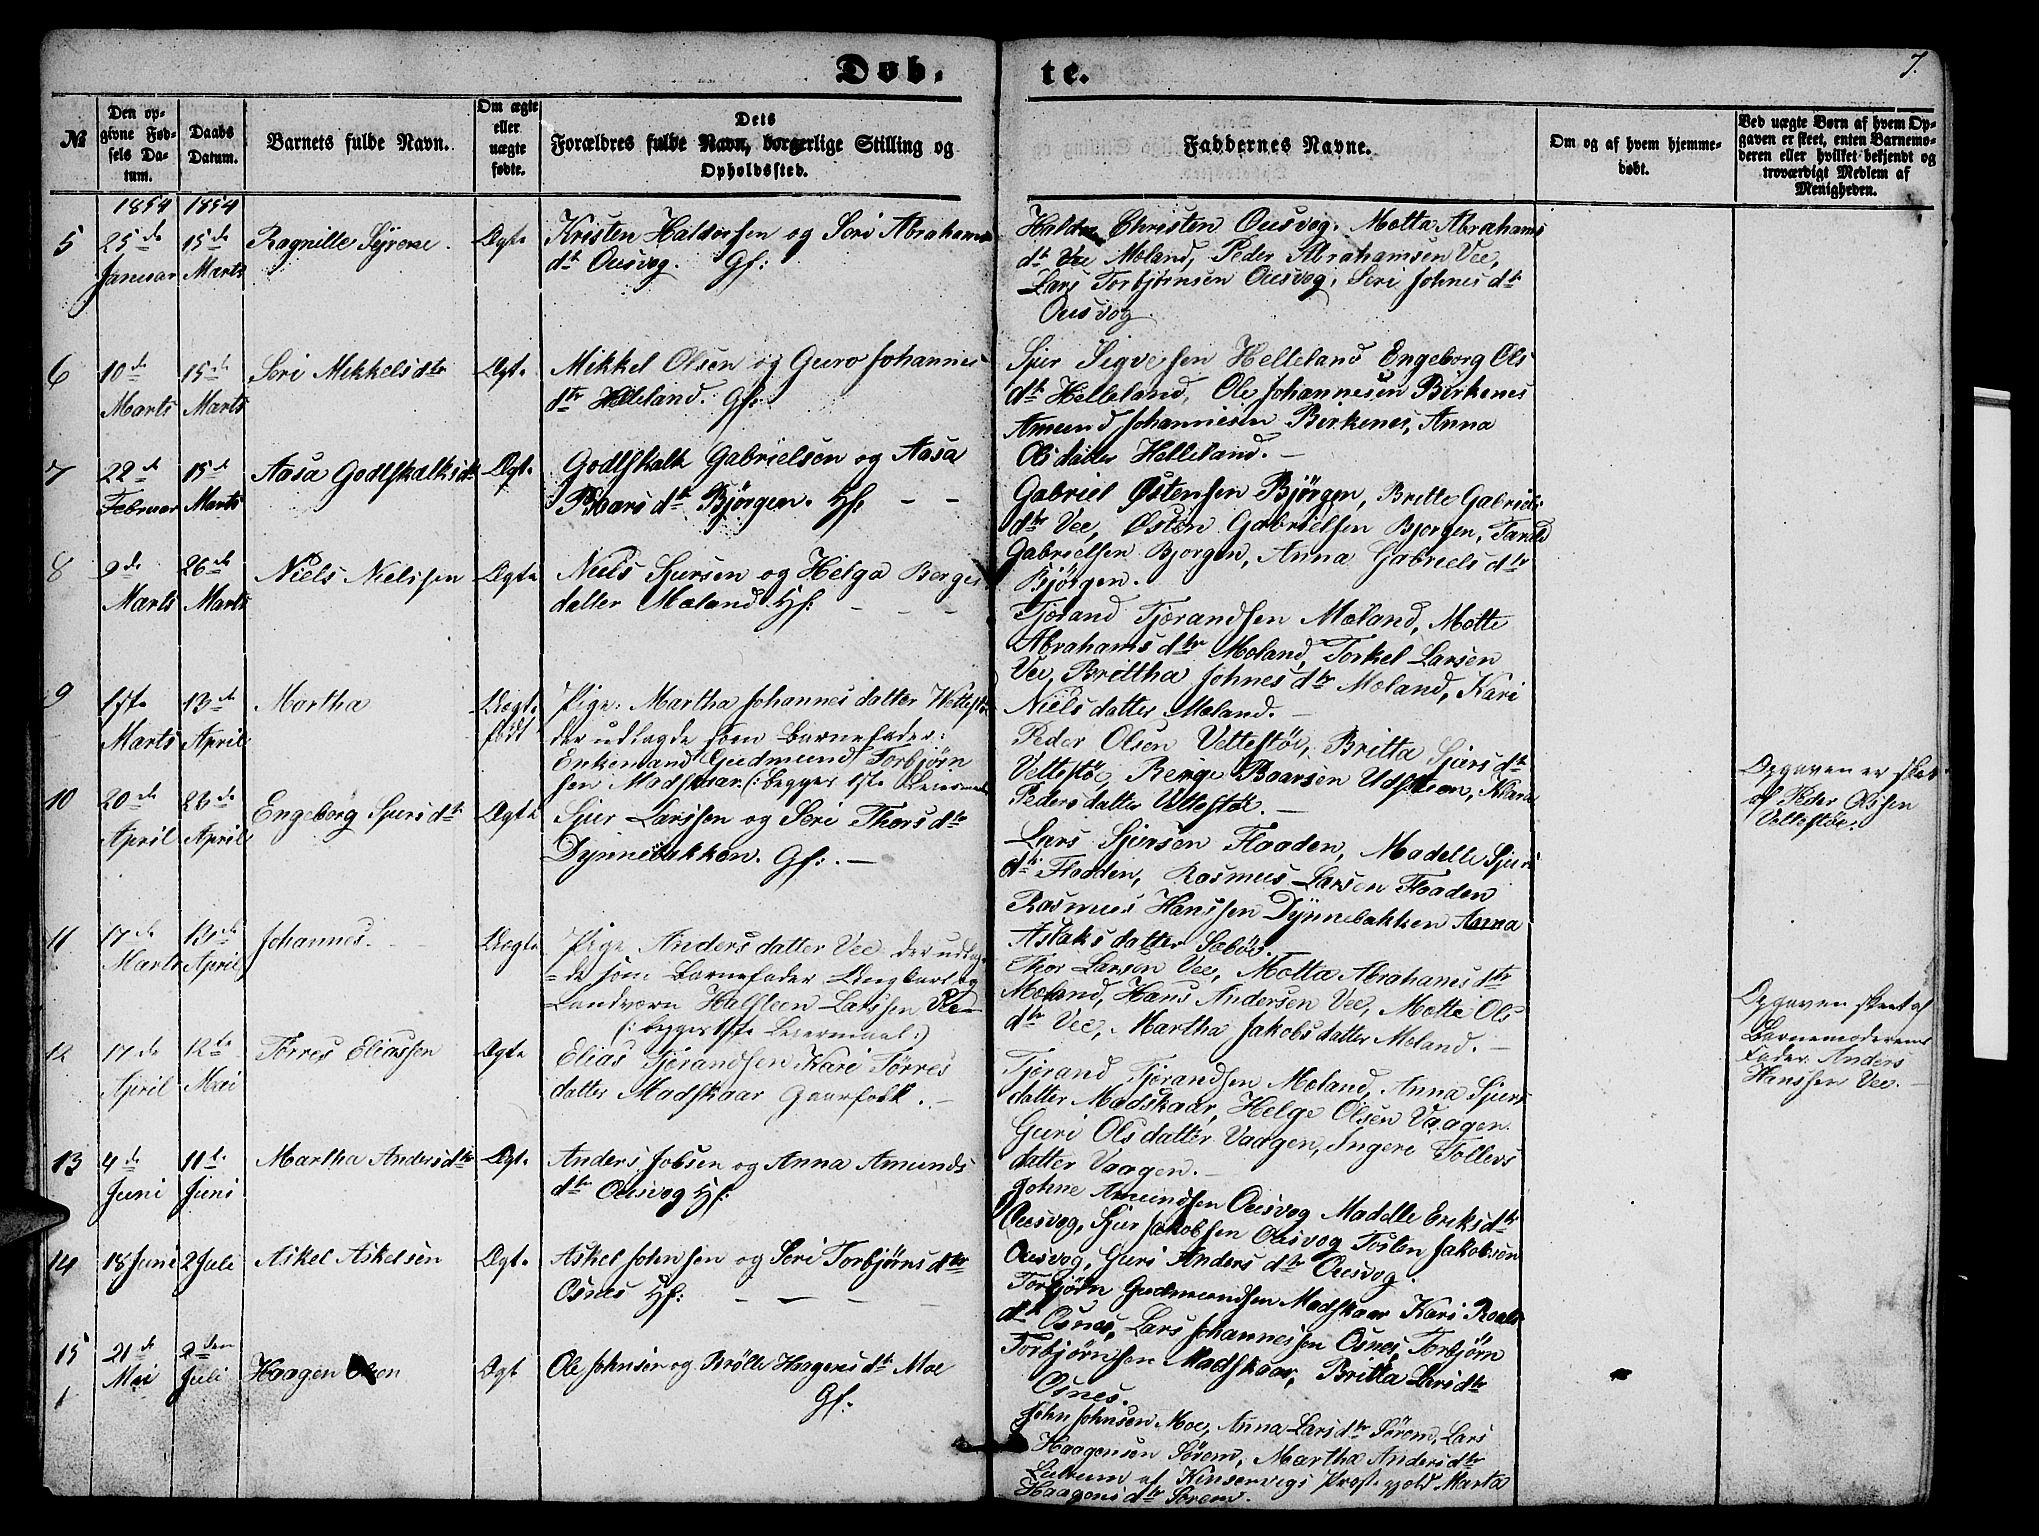 Døb.
te.
7.
№
Den op-
givne Fød-
sels Da-
tum.
Daabs
Datum.
Barnets fulde Navn.
Om ægte
eller
uægte
fødte.
Dets
Forældres fulde Navn, borgerlige Stilling og
Opholdssted.
Faddernes Navne.
Om og af hvem hjemme-
døbt.
Ved uægte Børn af hvem Op-
gaven er skeet, enten Barnemo-
deren eller hvilket bekjendt og
troværdigt Medlem af
Menigheden.
1854 1854
5 25de Januar 15de Marts Ragnille Syverse Ægte
Kristen Haldorsen og Særi Abrahams
dtr Ousvog. Gf:
Christen Ousvog. Motta Abrahams
dtr Vee Moland, Peder Abrahamsen Vee,
Lars Torbjørnsen Ousvog, Seri Johnes dtr
Ousvog.
6 10de Marts 15de Marts Seri Mikkelsdtr Ægte
Mikkel Olsen og Guro Johannes
dtr Helleland. Gf:
Sjur Sigvesen Helleland Engeborg Ols
dtr Helleland, Ole Johannesen Birkenes
Amund Johannesen Birkenes, Anna
Olsdatter Helleland. —
7 22de Februar 15de Marts Aasa Godtskalksdtr Ægte
Godtskalk Gabrielsen og Aasa
Baars dtr Bjørgen. Hf. — —
Gabriel Østensen Bjørgen, Britte Gabriels
dtr Vee, Østen Gabrielsen Bjorgen,
Gabrielsen Bjorgen, Anna Gabriels dtr
Bjørgen.
8 9de Marts 26de Marts Niels Nielssen Ægte
Niels Sjursen og Helga Berges
datter Moland Hf: — — —
Tjørand Tjørandsen Moland, Motte
Abrahams dtr Moland, Torkel Larsen
Vee, Brittha Johnes dtr Moland, Kari
Niels datter Moland. —
9 17de Marts 13de April Martha Uægte født
Pige: Martha Johannes datter
der udlagde som Barnefader:
Enkemand Gudmund Torbjørn
sen Madskaar (: begges 1ste Leiermaal
Peder Olsen Vettestøe, Britta Sjurs dtr
Vettestøe, Berge Baarsen
Peders datter Vettestøe. —
Opgaven er skeet
af Peder Olssen
Vettestøe.
10 20de April 23de April Engeborg Sjursdtr Ægte
Sjur Larssen og Seri Thors dtr
Dynnebakken. Gf: —
Lars Sjursen Flaaden, Madelle Sjurs
dtr Flodden, Rasmus Larsen Flaaden
Rasmus Hanssen Dynnebakken Anna
Aslaks datter Sæbøe.
11 17de Marts 13de April Johannes. Uægte
Pige Anders datter Vee der udlag-
de som Barnefader Ungkarl og
Landværn Halsteen Larssen Vee
(: begges 1ste Leiermaal:)
Thor Larsen Vee, Motta Abrahams dtr
Moland, Hans Andersen Vee, Motte Ols
dtr Vee, Martha Jakobs datter Moland. —
Opgaven skeet af
Barnemoderens
Fader Anders
Hanssen Vee. —
12 17de April 12de Mai Torres Eliassen Ægte
Elias Tjørandsen Kari Tørres
datter Madskaar Gaarfolk. —
Tjørand Tjørandsen Moland, Anna Sjurs
datter Madskaar, Helge Olsen Vaagen
Guri Olsdatter Vaagen, Ingeri Tollevs
datter Vaagen. —
13 4de Juni 11te Juni Martha Andersdtr Ægte
Anders Jobsen og Anna Amunds
dtr Ousvog Hf:
Johne Amundsen Ousvog Madelle Eriks dtr
Ousvog, Sjur Jakobsen Ousvog Tosten Jakobsen
Ousvog, Guri Anders dtr Ousvog.
14 18 Juni 2 Juli Askel Askelsen Ægte
Askel Johnsen og Seri Torbjørns dtr
Osnes Hf: — — — —
Torbjørn Gudmundsen Madskaar Kari Roals
dtr Osnes, Lars Johannessen Osnes, Torbjørn
Torbjørnsen Madskaar, Britta Larsdtr
Osnes.
15 21de Mai 2den Juli Haagen Olsen Ægt
Ole Johnsen og Brølle Haagens dtr Moe
Gf.
John Johnsen Moe, Anna Larsdtr Sørem, Lars
Haagensen Sørem, Martha Andersdtr
af Kinservigs Præstegjeld Marta
Haagens dtr Sørem.